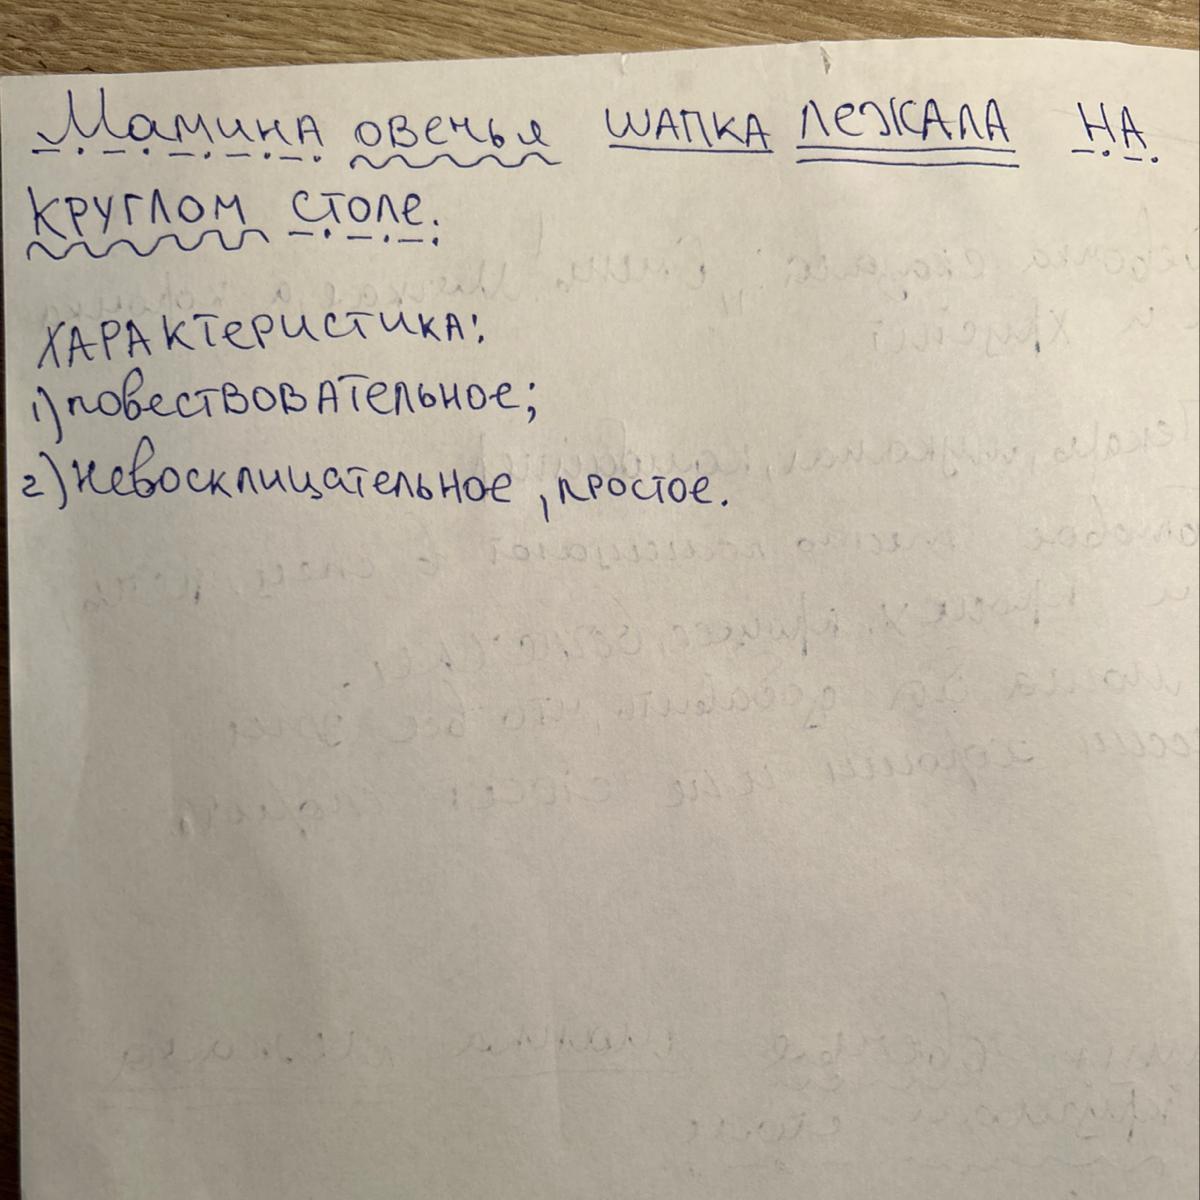 Мамина овечья шапка лежала на
круглом столе.
Характеристика:
1) повествовательное;
2) невосклицательное, простое.